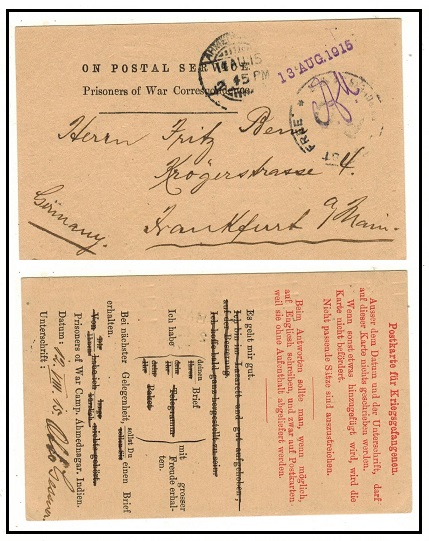 ON POSTAL SERVICE
Prisoners of War Correspondence.
14 AU 15
45 PM
13 AUG. 1915
FREE
Herrn Fritz
Krögerstrasse 4.
Frankfurt a/Main.
Germany.
Postkarte für Kriegsgefangenen.
Ausser dem Datum und der Unterschrift, darf
auf dieser Karte nichts geschrieben werden,
Wenn sonst etwas hinzugefügt wird, wird die
Karte nicht befördert.
Nicht passende Sätze sind auszustreichen.
Beim Antworten sollte man, wenn möglich,
auf Englisch schreiben, und zwar auf Postkarten
weil sie ohne Aufenthalt abgeliefert werden.
Es geht mir gut.
Ich bin im Lazarett und gut aufgehoben;
Ich hoffe bald
Ich habe
deinen Brief
Telegramm
Paket
mit grosser Freude erhalten.
Bei nächster Gelegenheit,
sollst Du
einen Brief
erhalten.
Prisoners of War Camp, Ahmednagar, Indien.
Datum: 12. VIII. 15.
Unterschrift: Otto